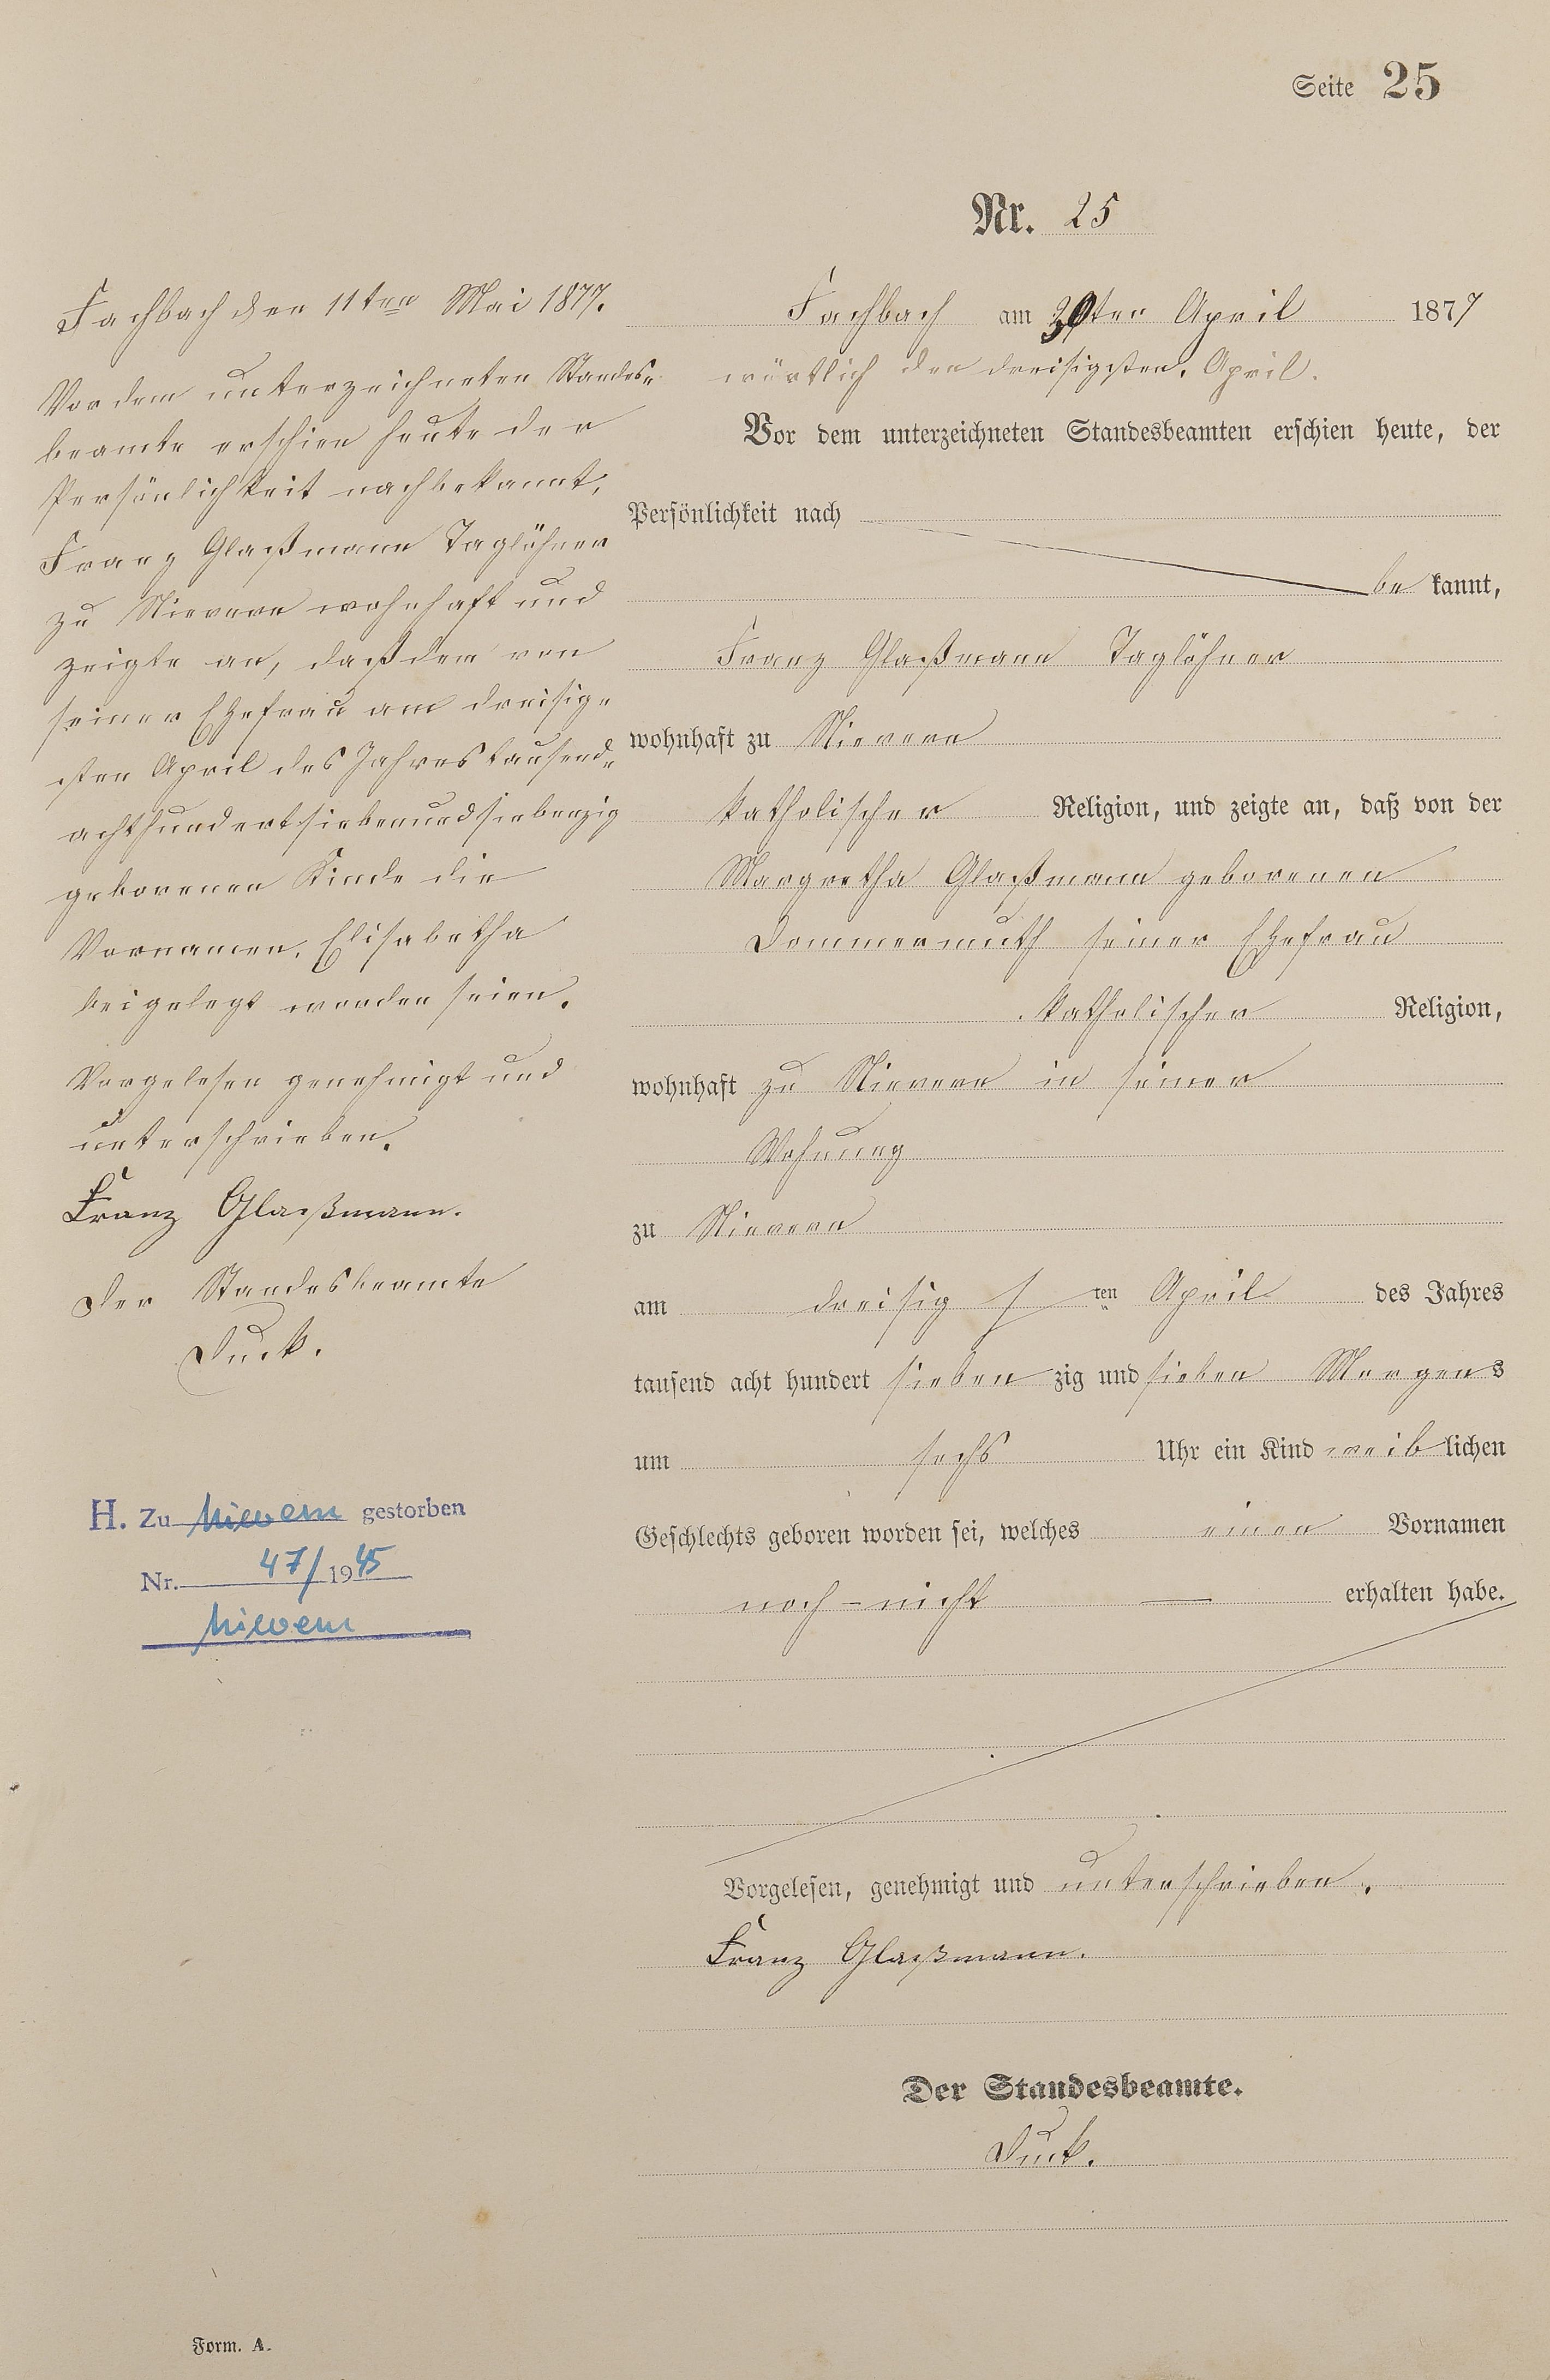 Seite 25
Nr. 25
Fachbach den 11ten Mai 1877.
Vor dem unterzeichneten Standes-
beamte erschien heute der
Persönlichkeit nach bekannt,
Franz Glaßmann Taglöhner
zu Nievern wohnhaft und
zeigte an, daß dem von
seiner Ehefrau am dreisig-
sten April des Jahres tausend-
achthundertsiebenundsiebenzig
geborenen Kinde die
Vornamen, Elisabetha
beigelegt worden seien.
Vorgelesen genehmigt und
unterschrieben.
Franz Glaßmann.
Der Standesbeamte
Duck.
H. Zu Nievern gestorben
Nr. 47/1945
Nievern
Fachbach am 30ten April 1877
wörtlich den dreisigsten. April.
Vor dem unterzeichneten Standesbeamten erschien heute, der
Persönlichkeit nach
be kannt,
Franz Glaßmann Taglöhner
wohnhaft zu Nievern
katholischer Religion, und zeigte an, daß von der
Margretha Glaßmann geborenen
Dommermuth seiner Ehefrau
katholischer Religion,
wohnhaft zu Nievern in seiner
Wohnung
zu Nievern
am dreisig s ten April des Jahres
tausend acht hundert sieben zig und sieben Morgens
um sechs Uhr ein Kind weib lichen
Geschlechts geboren worden sei, welches einen Vornamen
noch - nicht — erhalten habe.
Vorgelesen, genehmigt und unterschrieben.
Franz Glaßmann.
Der Standesbeamte.
Duck.
Form. A.